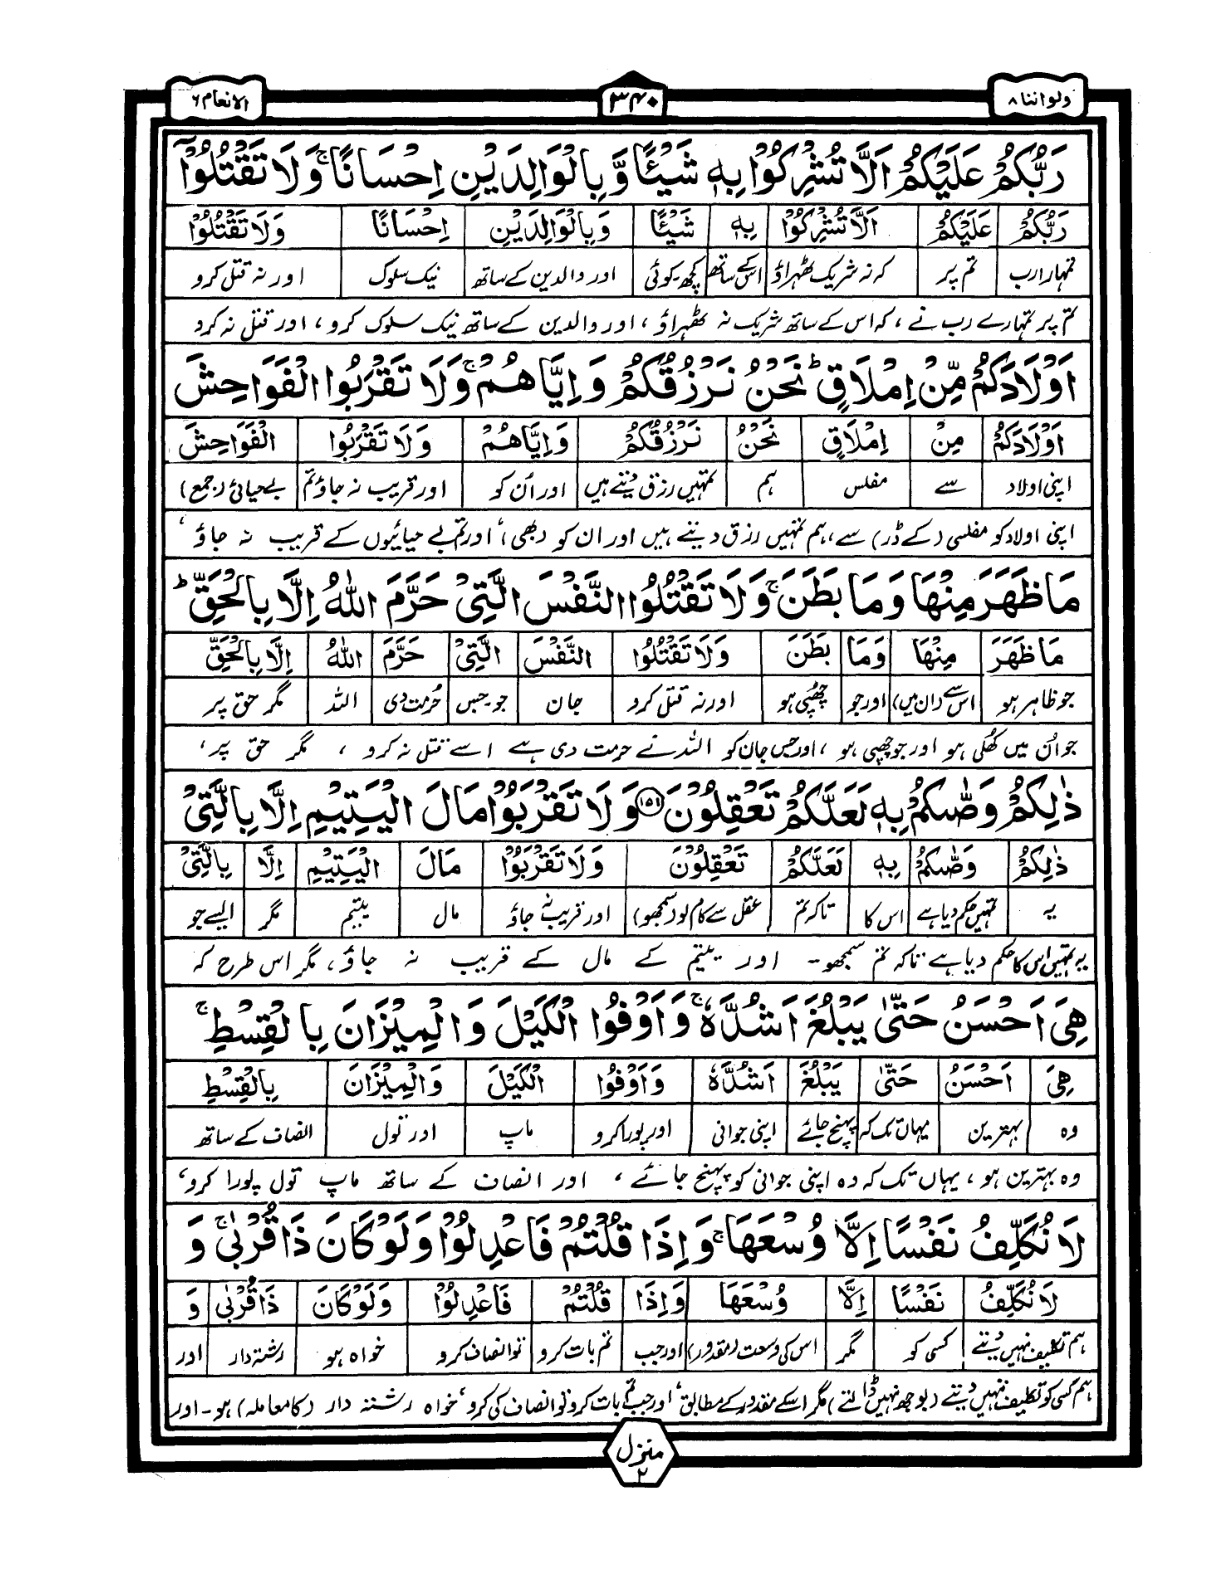 ولواننا ٨
٣٤٠
الانعام ٦
رَبُّكُمْ عَلَيْكُمْ اَلَّا تُشْرِكُوْا بِهٖ شَيْـًٔا وَّ بِالْوَالِدَيْنِ اِحْسَانًا ۚ وَلَا تَقْتُلُوْٓا
رَبُّكُمْ عَلَيْكُمْ اَلَّا تُشْرِكُوْا بِهٖ شَيْـًٔا وَبِالْوَالِدَيْنِ اِحْسَانًا وَلَا تَقْتُلُوْا
تمہارا رب تم پر کہ نہ شریک ٹھہراؤ اس کے ساتھ کچھ۔کوئی اور والدین کے ساتھ نیک سلوک اور نہ قتل کرو
تم پر تمہارے رب نے ، کہ اس کے ساتھ شریک نہ ٹھہراؤ ، اور والدین کے ساتھ نیک سلوک کرو ، اور قتل نہ کرو
اَوْلَادَكُمْ مِّنْ اِمْلَاقٍ ؕ نَحْنُ نَرْزُقُكُمْ وَ اِيَّاهُمْ ۚ وَلَا تَقْرَبُوا الْفَوَاحِشَ
اَوْلَادَكُمْ مِنْ اِمْلَاقٍ نَحْنُ نَرْزُقُكُمْ وَاِيَّاهُمْ وَلَا تَقْرَبُوا الْفَوَاحِشَ
اپنی اولاد سے مفلس ہم تمہیں رزق دیتے ہیں اور اُن کو اور قریب نہ جاؤ تم بے حیائی (جمع)
اپنی اولاد کو مفلسی (کے ڈر) سے، ہم تمہیں رزق دیتے ہیں اور ان کو (بھی)، اور تم بے حیائیوں کے قریب نہ جاؤ ،
مَا ظَهَرَ مِنْهَا وَ مَا بَطَنَ ۚ وَلَا تَقْتُلُوا النَّفْسَ الَّتِيْ حَرَّمَ اللّٰهُ اِلَّا بِالْحَقِّ ؕ
مَا ظَهَرَ مِنْهَا وَمَا بَطَنَ وَلَا تَقْتُلُوْا النَّفْسَ الَّتِيْ حَرَّمَ اللّٰهُ اِلَّا بِالْحَقِّ
جو ظاہر ہو اس سے (ان میں) اور جو چھپی ہو اور نہ قتل کرو جان جو جس حُرمت دی اللہ مگر حق پر
جو اُن میں کُھلی ہو اور جو چھپی ہو ، اور جس جان کو اللہ نے حرمت دی ہے اسے قتل نہ کرو ، مگر حق پر ،
ذٰلِكُمْ وَصّٰىكُمْ بِهٖ لَعَلَّكُمْ تَعْقِلُوْنَ ﴿١٥١﴾ وَلَا تَقْرَبُوْا مَالَ الْيَتِيْمِ اِلَّا بِالَّتِيْ
ذٰلِكُمْ وَصّٰىكُمْ بِهٖ لَعَلَّكُمْ تَعْقِلُوْنَ وَلَا تَقْرَبُوْا مَالَ الْيَتِيْمِ اِلَّا بِالَّتِيْ
یہ تمہیں حکم دیا ہے اس کا تاکہ تم عقل سے کام لو (سمجھو) اور قریب نہ جاؤ مال یتیم مگر ایسے جو
یہ تمہیں اس کا حکم دیا ہے تاکہ تم سمجھو۔ اور یتیم کے مال کے قریب نہ جاؤ، مگر اس طرح کہ
هِيَ اَحْسَنُ حَتّٰى يَبْلُغَ اَشُدَّهٗ ۚ وَ اَوْفُوا الْكَيْلَ وَالْمِيْزَانَ بِالْقِسْطِ ۚ
هِيَ اَحْسَنُ حَتّٰى يَبْلُغَ اَشُدَّهٗ وَاَوْفُوْا الْكَيْلَ وَالْمِيْزَانَ بِالْقِسْطِ
وہ بہترین یہاں تک کہ پہنچ جائے اپنی جوانی اور پورا کرو ماپ اور تول انصاف کے ساتھ
وہ بہترین ہو ، یہاں تک کہ وہ اپنی جوانی کو پہنچ جائے ، اور انصاف کے ساتھ ماپ تول پورا کرو ،
لَا نُكَلِّفُ نَفْسًا اِلَّا وُسْعَهَا ۚ وَاِذَا قُلْتُمْ فَاعْدِلُوْا وَلَوْ كَانَ ذَا قُرْبٰى ۚ وَ
لَا نُكَلِّفُ نَفْسًا اِلَّا وُسْعَهَا وَاِذَا قُلْتُمْ فَاعْدِلُوْا وَلَوْ كَانَ ذَا قُرْبٰى وَ
ہم تکلیف نہیں دیتے کسی کو مگر اس کی وسعت (مقدور) اور جب تم بات کرو تو انصاف کرو خواہ ہو رشتہ دار اور
ہم کسی کو تکلیف نہیں دیتے (بوجھ نہیں ڈالتے) مگر اسکے مقدور کے مطابق، اور جب تم بات کرو تو انصاف کی کرو، خواہ رشتہ دار (کا معاملہ) ہو۔ اور
منزل ٢